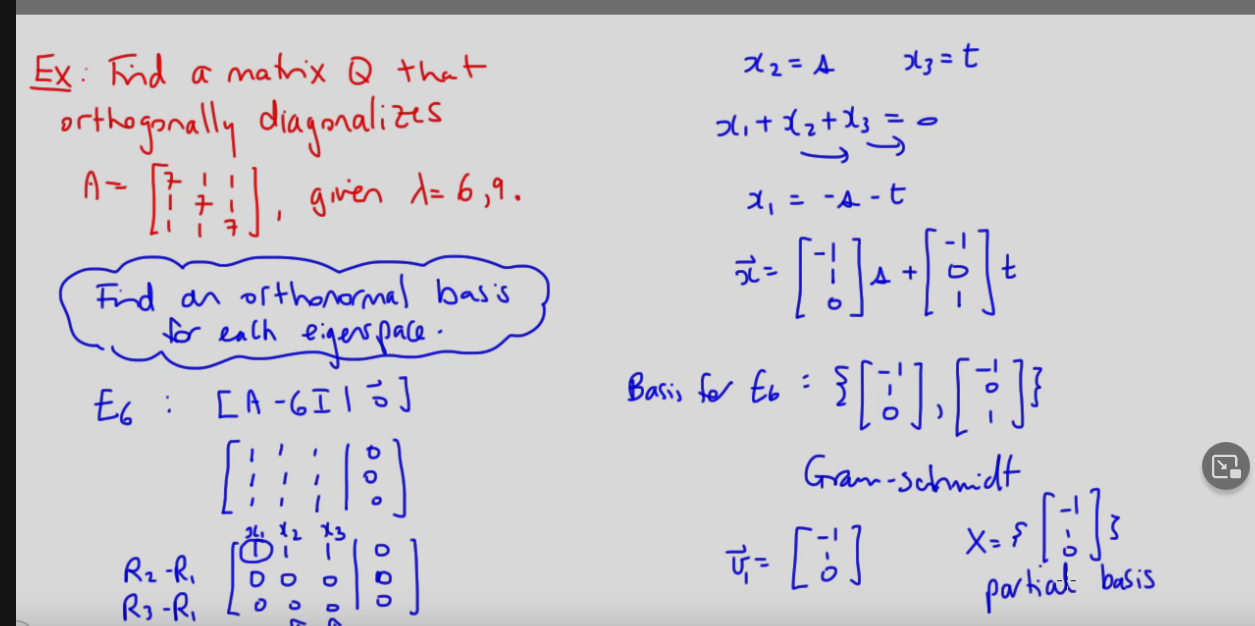 Ex: Find a matrix Q that
orthogonally diagonalizes
A = [7 1 1
1 7 1
1 1 7], given λ = 6, 9.
Find an orthonormal basis
for each eigenspace.
E6 : [A - 6I | 0⃗]
[1 1 1 | 0
1 1 1 | 0
1 1 1 | 0]
x1 x2 x3
[1 1 1 | 0
R2 - R1 0 0 0 | 0
R3 - R1 0 0 0 | 0]
x2 = s x3 = t
x1 + x2 + x3 = 0
x1 = -s - t
x⃗ = [-1 1 0] s + [-1 0 1] t
Basis for E6 : {[-1 1 0], [-1 0 1]}
Gram-schmidt
v⃗1 = [-1 1 0] X = {[-1 1 0]}
partial basis